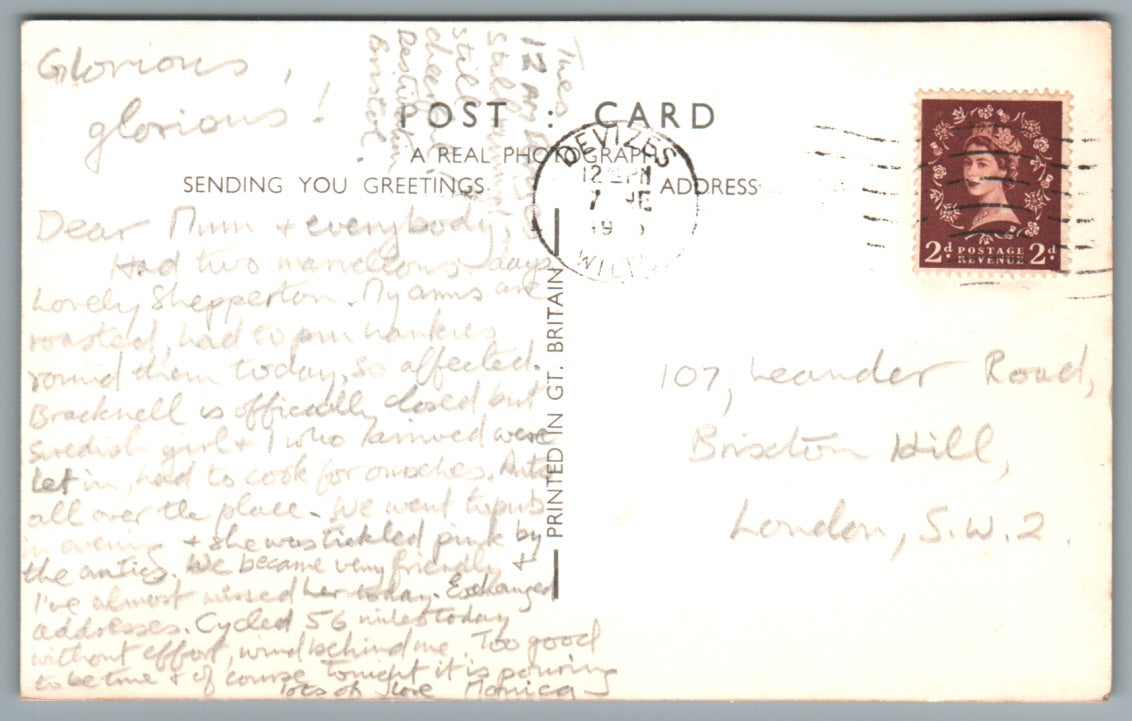 Glorious,
glorious!
Tues
12
Still
Still
cheer
Destination
Bristol.
POST : CARD
A REAL PHOTOGRAPH
SENDING YOU GREETINGS
ADDRESS
DEVIZES
12 PM
7 NE
19
WILTS
2d POSTAGE REVENUE 2d
PRINTED IN GT. BRITAIN
Dear Mum + everybody,
Had two marvellous days
Lovely Shepperton. My arms are
roasted, had to pin hankies
round them today, so affected.
Bracknell is officially closed, but
Swedish girl + I who arrived were
let in, had to cook for ourselves. Ants
all over the place. We went to pub
in evening + she was tickled pink by
the antics. We became very friendly +
I've almost missed her today. Exchanged
addresses. Cycled 56 miles today
without effort, wind behind me. Too good
to be true + of course tonight it is pouring
lots of love Monica
107, Leander Road,
Brixton Hill,
London, S.W.2.